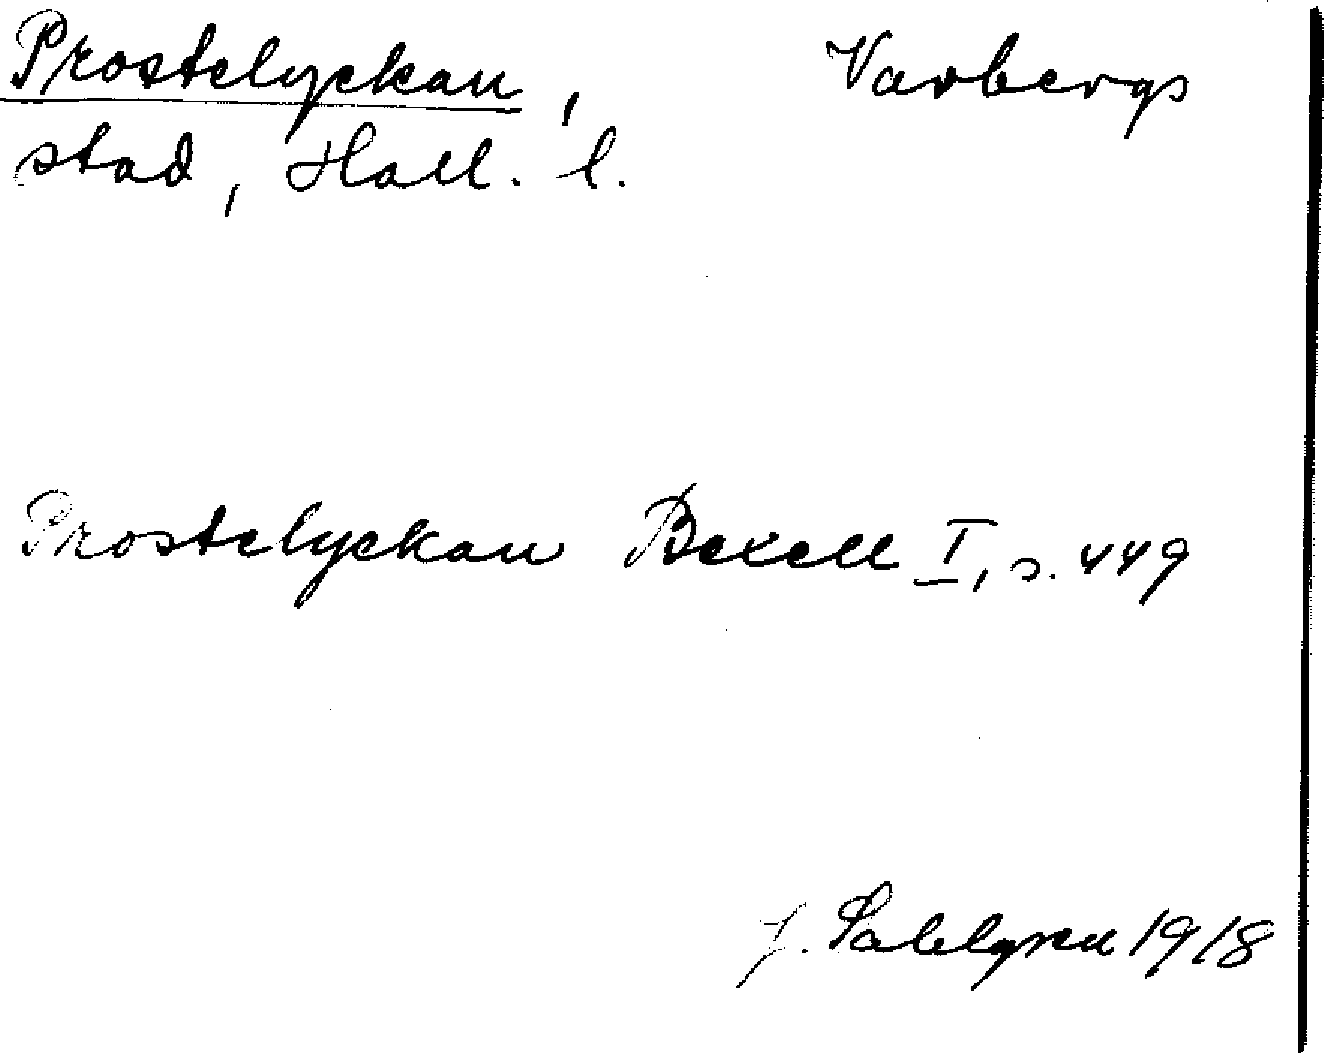 Prostelyckan, Varbergs
stad, Hall. l.
Prostelyckan Bexell I, s. 449
J. Sahlgren 1918